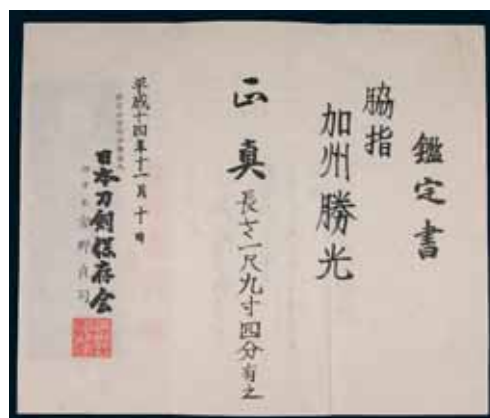 鑑定書
脇指
加州勝光
正真 長サ一尺九寸四分有之
平成十四年十一月十日
日本刀剣保存会